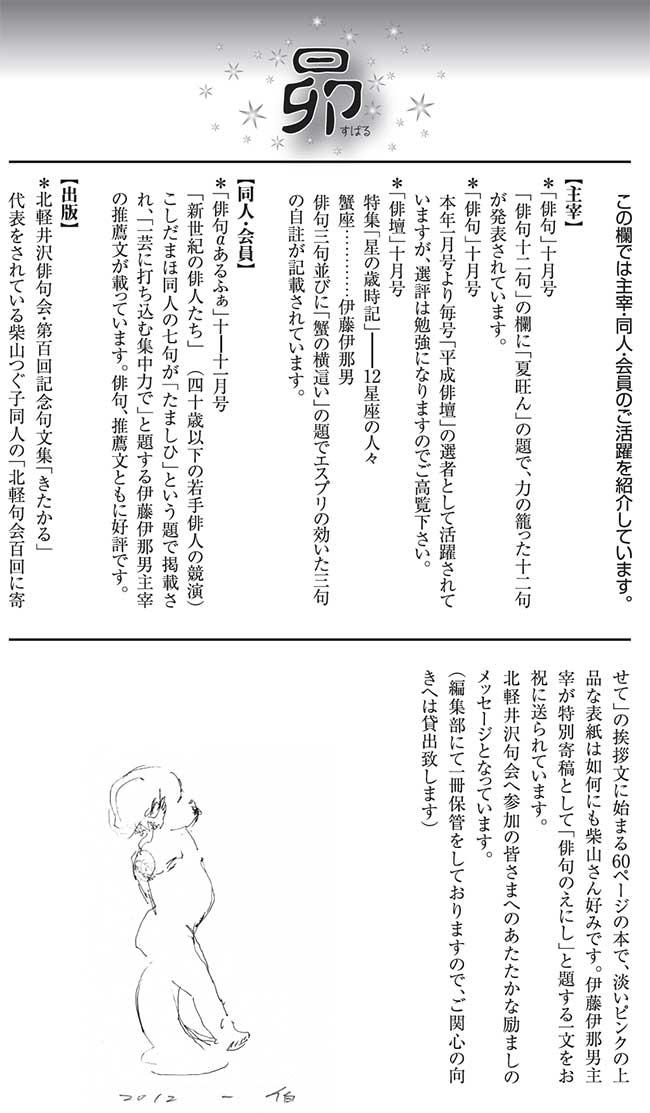 昴
すばる
この欄では主宰・同人・会員のご活躍を紹介しています。
【主宰】
＊「俳句」十月号
「俳句十二句」の欄に「夏旺ん」の題で、力の籠った十二句
が発表されています。
＊「俳句」十月号
本年一月号より毎号「平成俳壇」の選者として活躍されて
いますが、選評は勉強になりますのでご高覧下さい。
＊「俳壇」十月号
特集「星の歳時記」――12星座の人々
蟹座…………伊藤伊那男
俳句三句並びに「蟹の横這い」の題でエスプリの効いた三句
の自註が記載されています。
【同人・会員】
＊「俳句αあるふぁ」十―十一月号
「新世紀の俳人たち」（四十歳以下の若手俳人の競演）
こしだまほ同人の七句が「たましひ」という題で掲載さ
れ、「一芸に打ち込む集中力で」と題する伊藤伊那男主宰
の推薦文が載っています。俳句、推薦文ともに好評です。
【出版】
＊北軽井沢俳句会・第百回記念句文集「きたかる」
代表をされている柴山つぐ子同人の「北軽句会百回に寄
せて」の挨拶文に始まる60ページの本で、淡いピンクの上
品な表紙は如何にも柴山さん好みです。伊藤伊那男主
宰が特別寄稿として「俳句のえにし」と題する一文をお
祝に送られています。
北軽井沢句会へ参加の皆さまへのあたたかな励ましの
メッセージとなっています。
（編集部にて一冊保管をしておりますので、ご関心の向
きへは貸出致します）
2012 一 伯